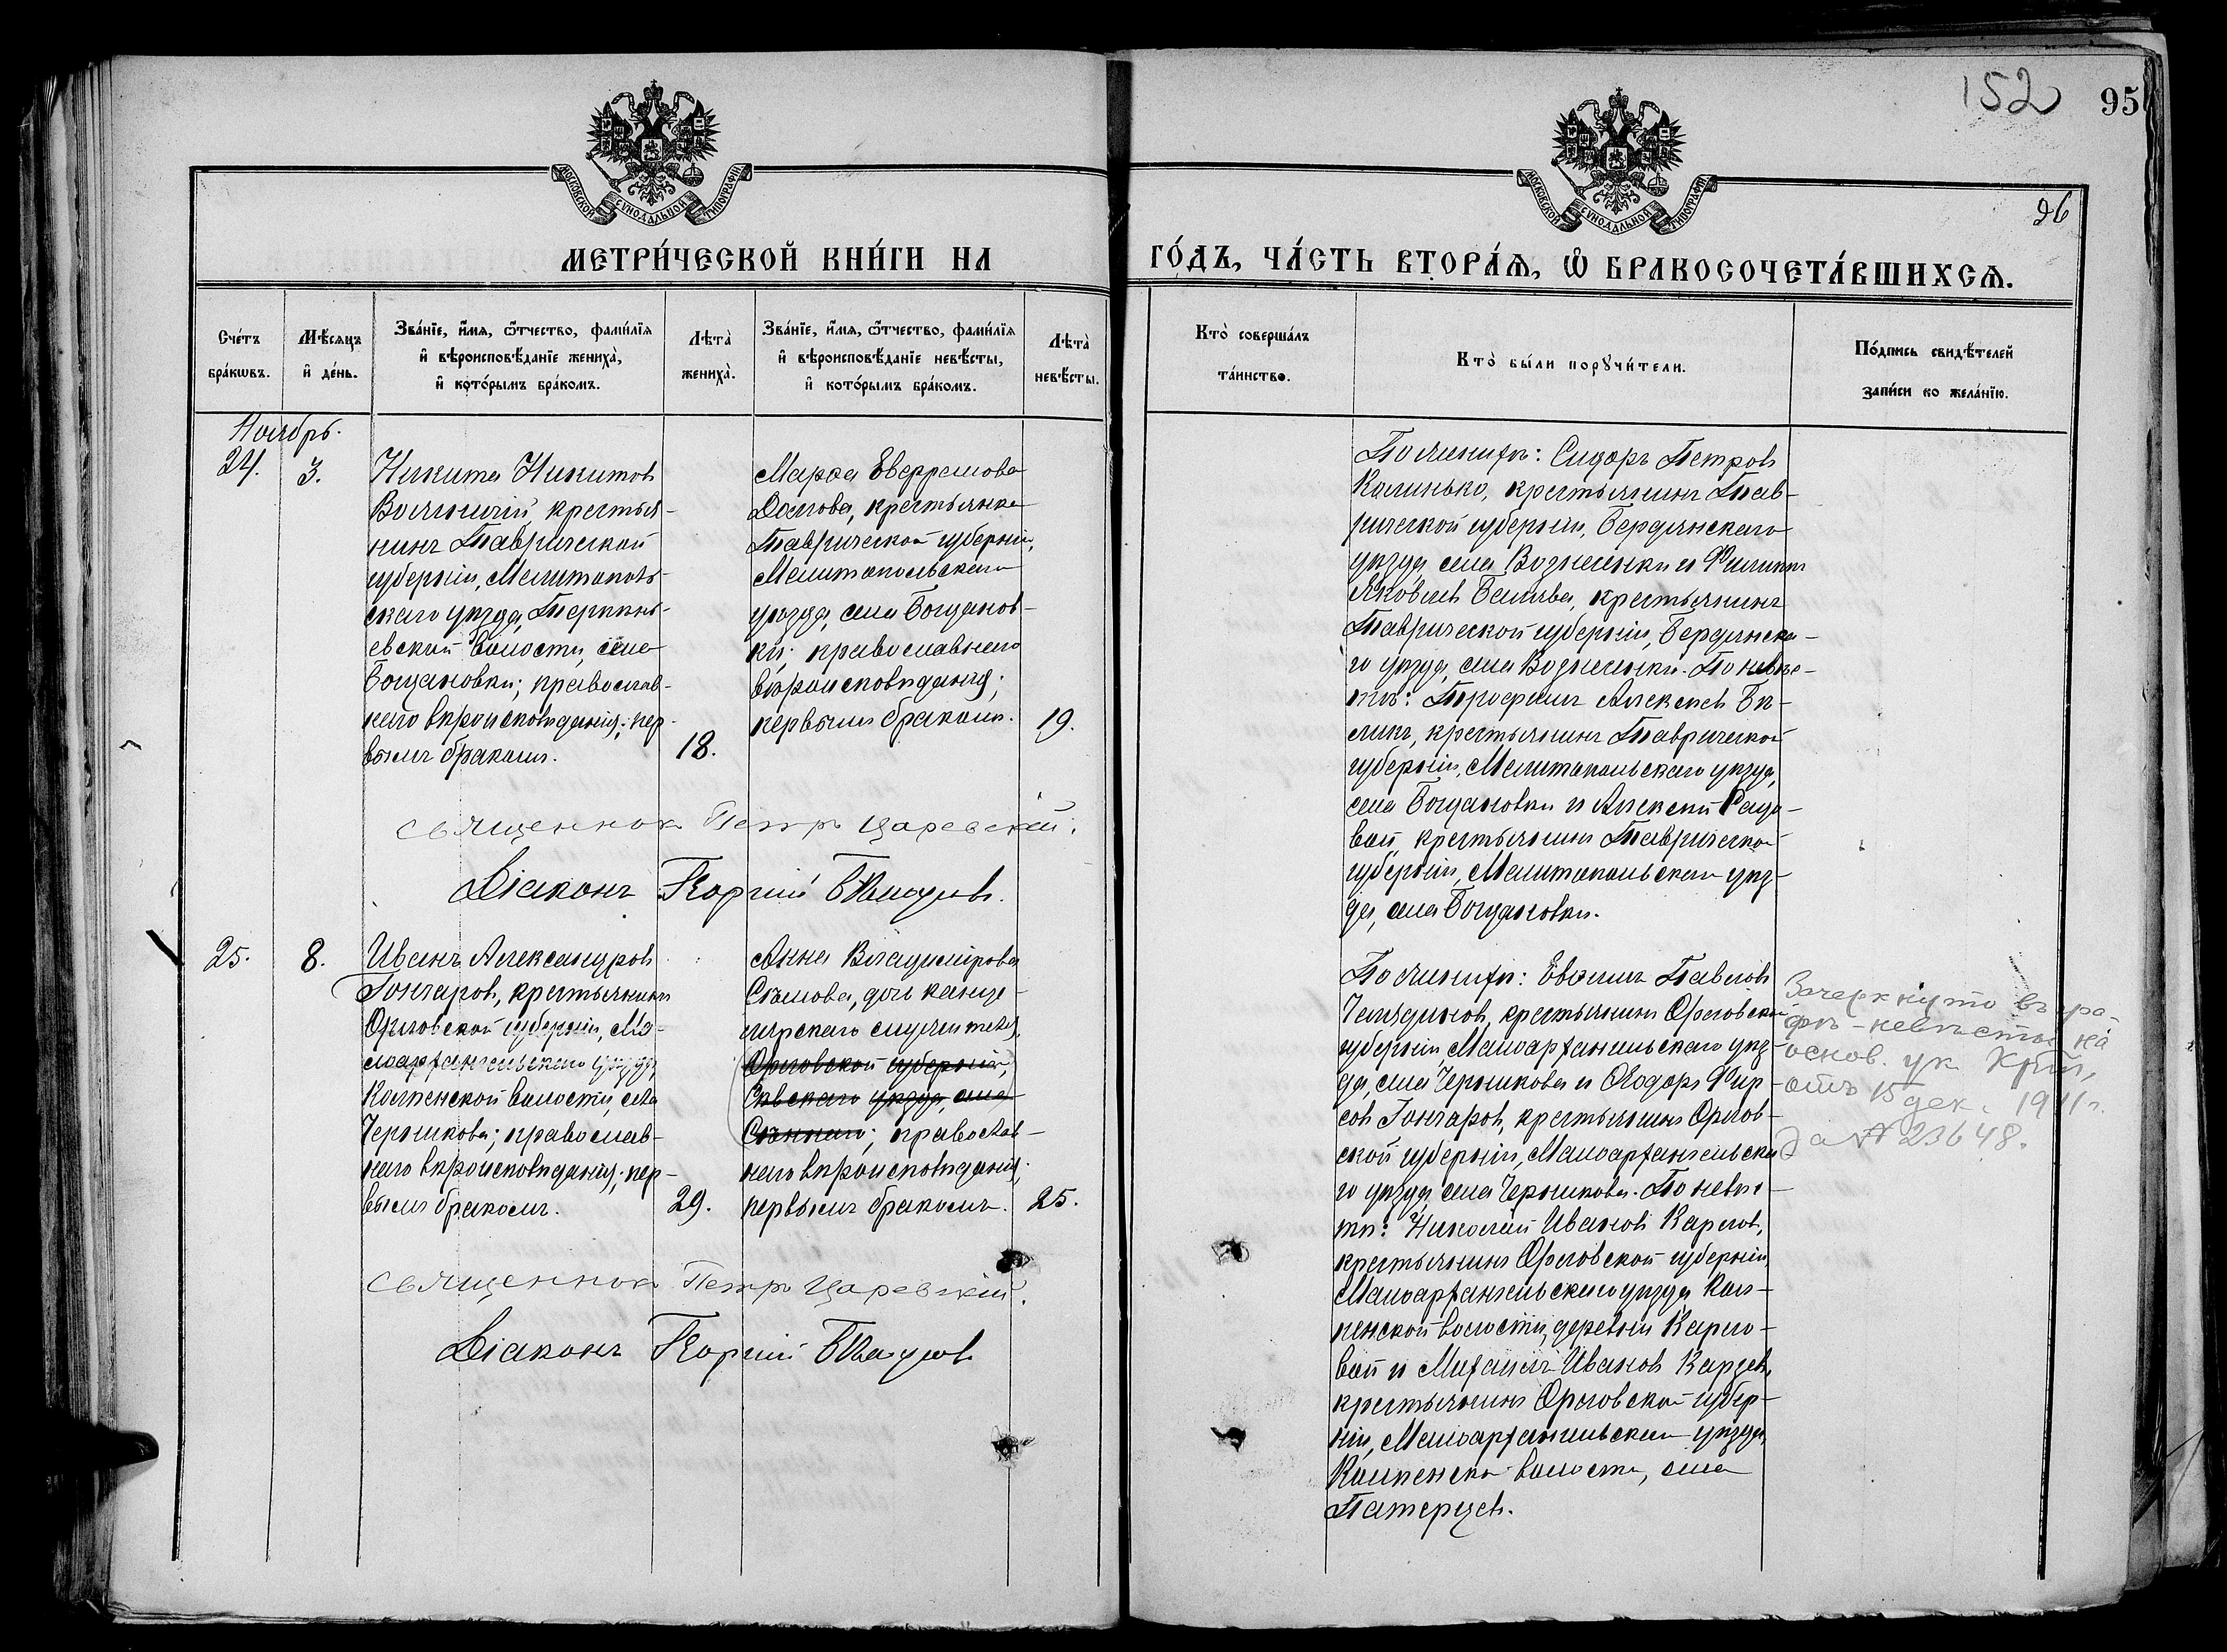 152
95
26
МОСКОВСКОЙ СѴНОДАЛЬНОЙ ТИПОГРАФІИ
МОСКОВСКОЙ СѴНОДАЛЬНОЙ ТИПОГРАФІИ
МЕТРИ́ЧЕСКОЙ КНИ́ГИ НА
ГО́ДЪ, ЧА́СТЬ ВТОРА́Ѧ, Ѽ БРАКОСОЧЕТА́ВШИХСѦ.
Сче́тъ
бра́кѡвъ.
Мѣ́сѧцъ
и҆ де́нь.
Зва́нїе, и҆́мѧ, ѻ҆́тчество, фами́лїѧ
и҆ вѣроисповѣ́данїе жениха̀,
и҆ кото́рымъ бра́комъ.
Лѣ́та̀
жениха̀.
Зва́нїе, и҆́мѧ, ѻ҆́тчество, фами́лїѧ
и҆ вѣроисповѣ́данїе невѣ́сты,
и҆ кото́рымъ бра́комъ.
Лѣ́та̀
невѣ́сты.
Кто̀ соверша́лъ
та́инство.
Кто̀ бы́ли порꙋчи́тели.
По́дпись свидѣ́телей
за́писи по жела́нїю.
Ноябрь.
24.
3.
Никита Никитовъ
крестья-
нинъ Таврической
губерніи, Мелитополь-
скаго уѣзда,
евской волости, села
Богдановки; православ-
наго вѣроисповѣданія; пер-
вымъ бракомъ.
18.
Марѳа
Долгова, крестьянка
Таврической губерніи,
Мелитопольскаго
уѣзда, села Богданов-
ки; православнаго
вѣроисповѣданія;
первымъ бракомъ.
19.
По женихѣ: Сидоръ Петровъ
Калинько, крестьянинъ Тав-
рической губерніи, Бердянскаго
уѣзда села Вознесенки и Филиппъ
Яковлевъ Беляева, крестьянинъ
Таврической губерніи, Бердянска-
го уѣзда, села Вознесенки. По невѣ-
стѣ: Трофимъ Алексѣевъ Бѣ-
ликъ, крестьянинъ Таврической
губерніи, Мелитопольскаго уѣзда,
села Богдановки и Алексѣй
крестьянинъ Таврической
губерніи, Мелитопольскаго уѣз-
да, села Богдановки.
священникъ Петръ Царевскій.
Діаконъ Георгій
25.
8.
Иванъ Александровъ
Гончаровъ, крестьянинъ
Орловской губерніи, Ма-
лоархангельскаго уѣзда,
Колпенской волости, села
Чернякова; православ-
наго вѣроисповѣданія; пер-
вымъ бракомъ.
29.
Анна Владимірова
дочь канце-
лярскаго служителя,
Орловской губерніи,
Сѣвскаго уѣзда, села
православ-
наго вѣроисповѣданія;
первымъ бракомъ.
25.
По женихѣ: Павловъ
крестьянинъ Орловской
губерніи, Малоархангельскаго уѣз-
да, села Чернякова и Ѳеодоръ Фир-
совъ Гончаровъ, крестьянинъ Орлов-
ской губерніи, Малоархангельска-
го уѣзда, села Чернякова. По невѣс-
тѣ: Николай Ивановъ Карловъ,
крестьянинъ Орловской губерніи,
Малоархангельскаго уѣзда Кол-
пенской волости, деревни Карло-
вой и Михаилъ Ивановъ
крестьянинъ Орловской губер-
ніи, Малоархангельскаго уѣзда,
Колпенской волости, села
Зачеркнуто въ гра-
фѣ - невѣсты на
основ. ук.
отъ 15 дек. 1911 г.
за № 23648.
священникъ Петръ Царевскій.
Діаконъ Георгій